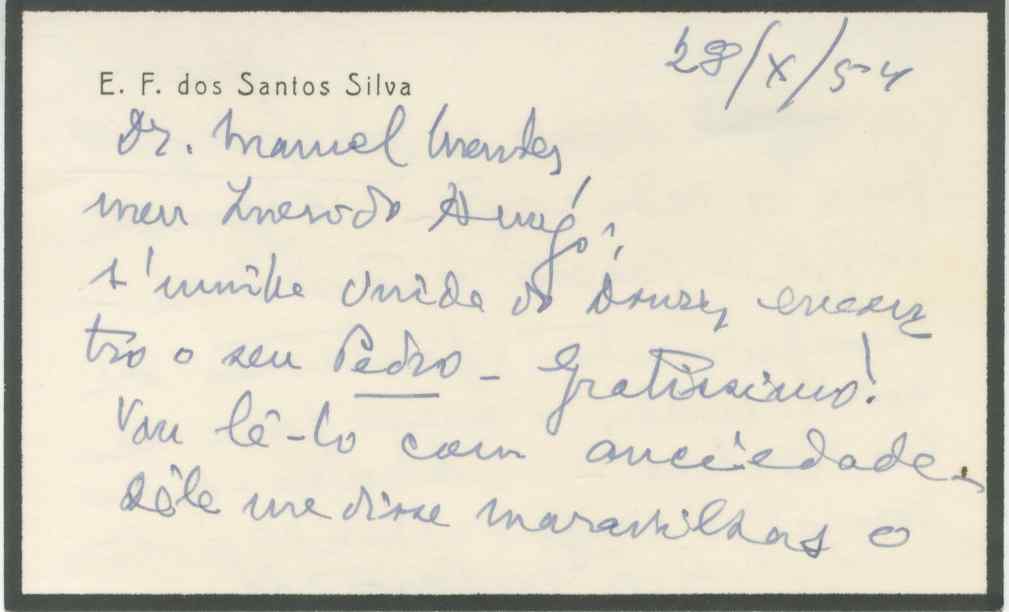 28/X/54
E. F. dos Santos Silva
Dr. Manuel Mendes,
meu Amigo:
À minha vinda do Douro, encon
tro o seu Pedro - Gratíssimo!
Vou lê-lo com anciedade.
Dêle me disse maravilhas o